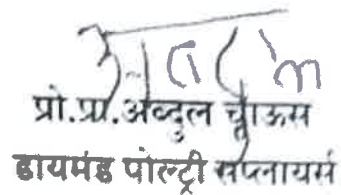 प्रो.प्रा.अब्दुल चाऊस
डायमंड पोल्ट्री सप्लायर्स